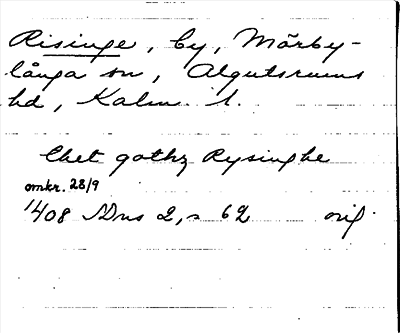 Risinge, by, Mörby-
långa sn, Algutsrums
hd, Kalm. l.
Chet gothz Rysinghe
omkr. 28/9
1408 SDns 2, s 62 orig.